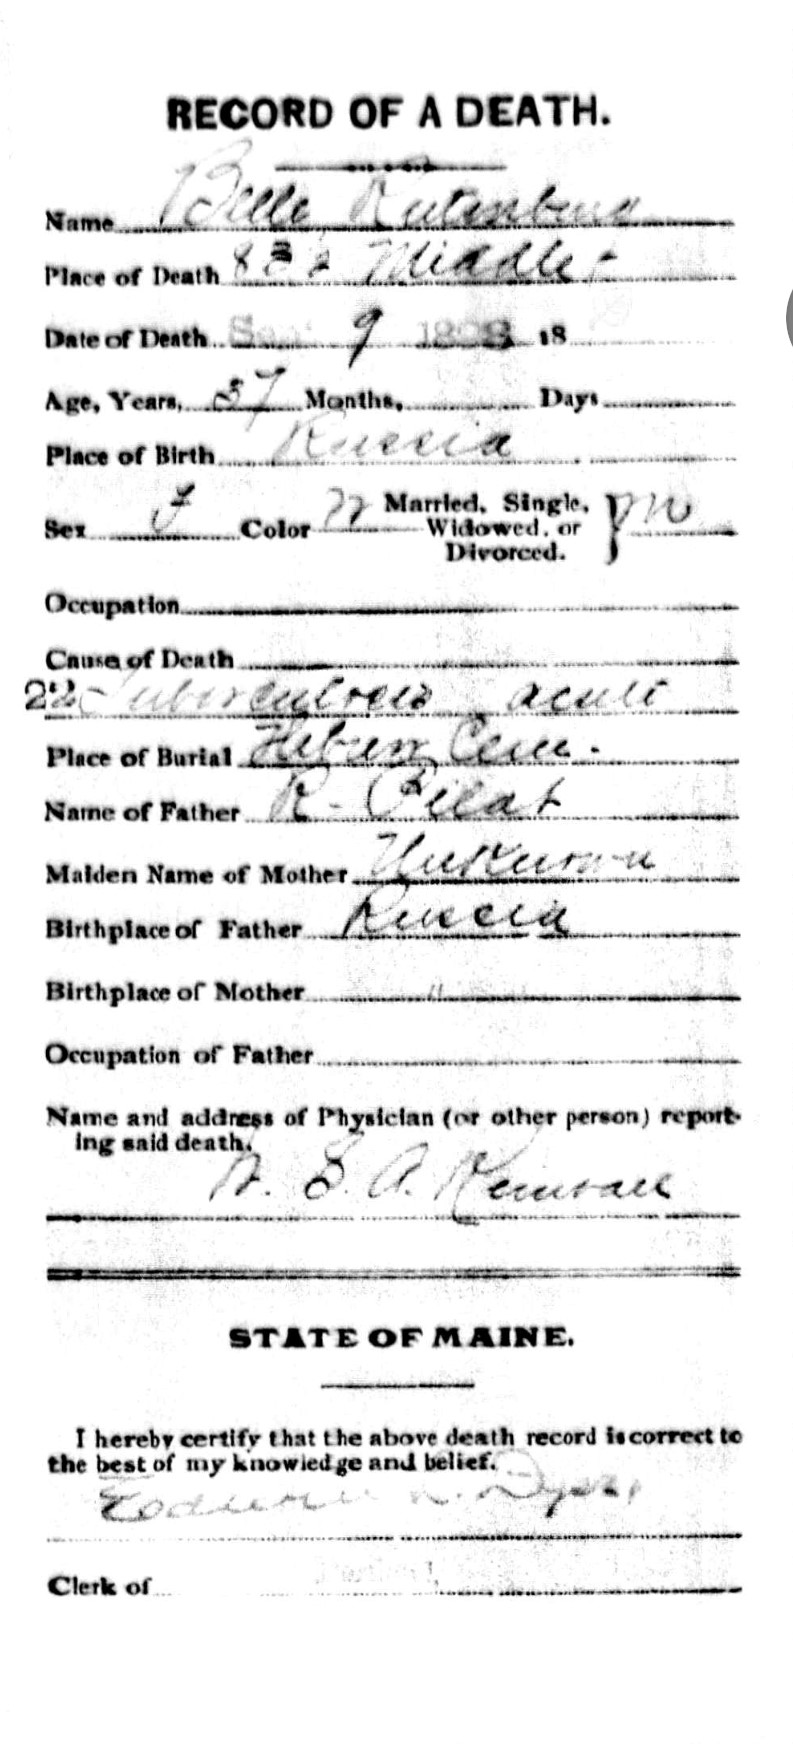 RECORD OF A DEATH.
Name Belle Rutenburg
Place of Death 83½ Middle
Date of Death 9 18
Age, Years, 37 Months, Days
Place of Birth Russia
Sex F Color W Married, Single, Widowed, or Divorced. } M
Occupation
Cause of Death
22 Tuberculosis acute
Place of Burial Hebrew Cem.
Name of Father R. Pilat
Maiden Name of Mother Unknown
Birthplace of Father Russia
Birthplace of Mother "
Occupation of Father
Name and address of Physician (or other person) report-
ing said death.
A. Kimball
STATE OF MAINE.
I hereby certify that the above death record is correct to
the best of my knowledge and belief.
L. Dyer,
Clerk of Portland